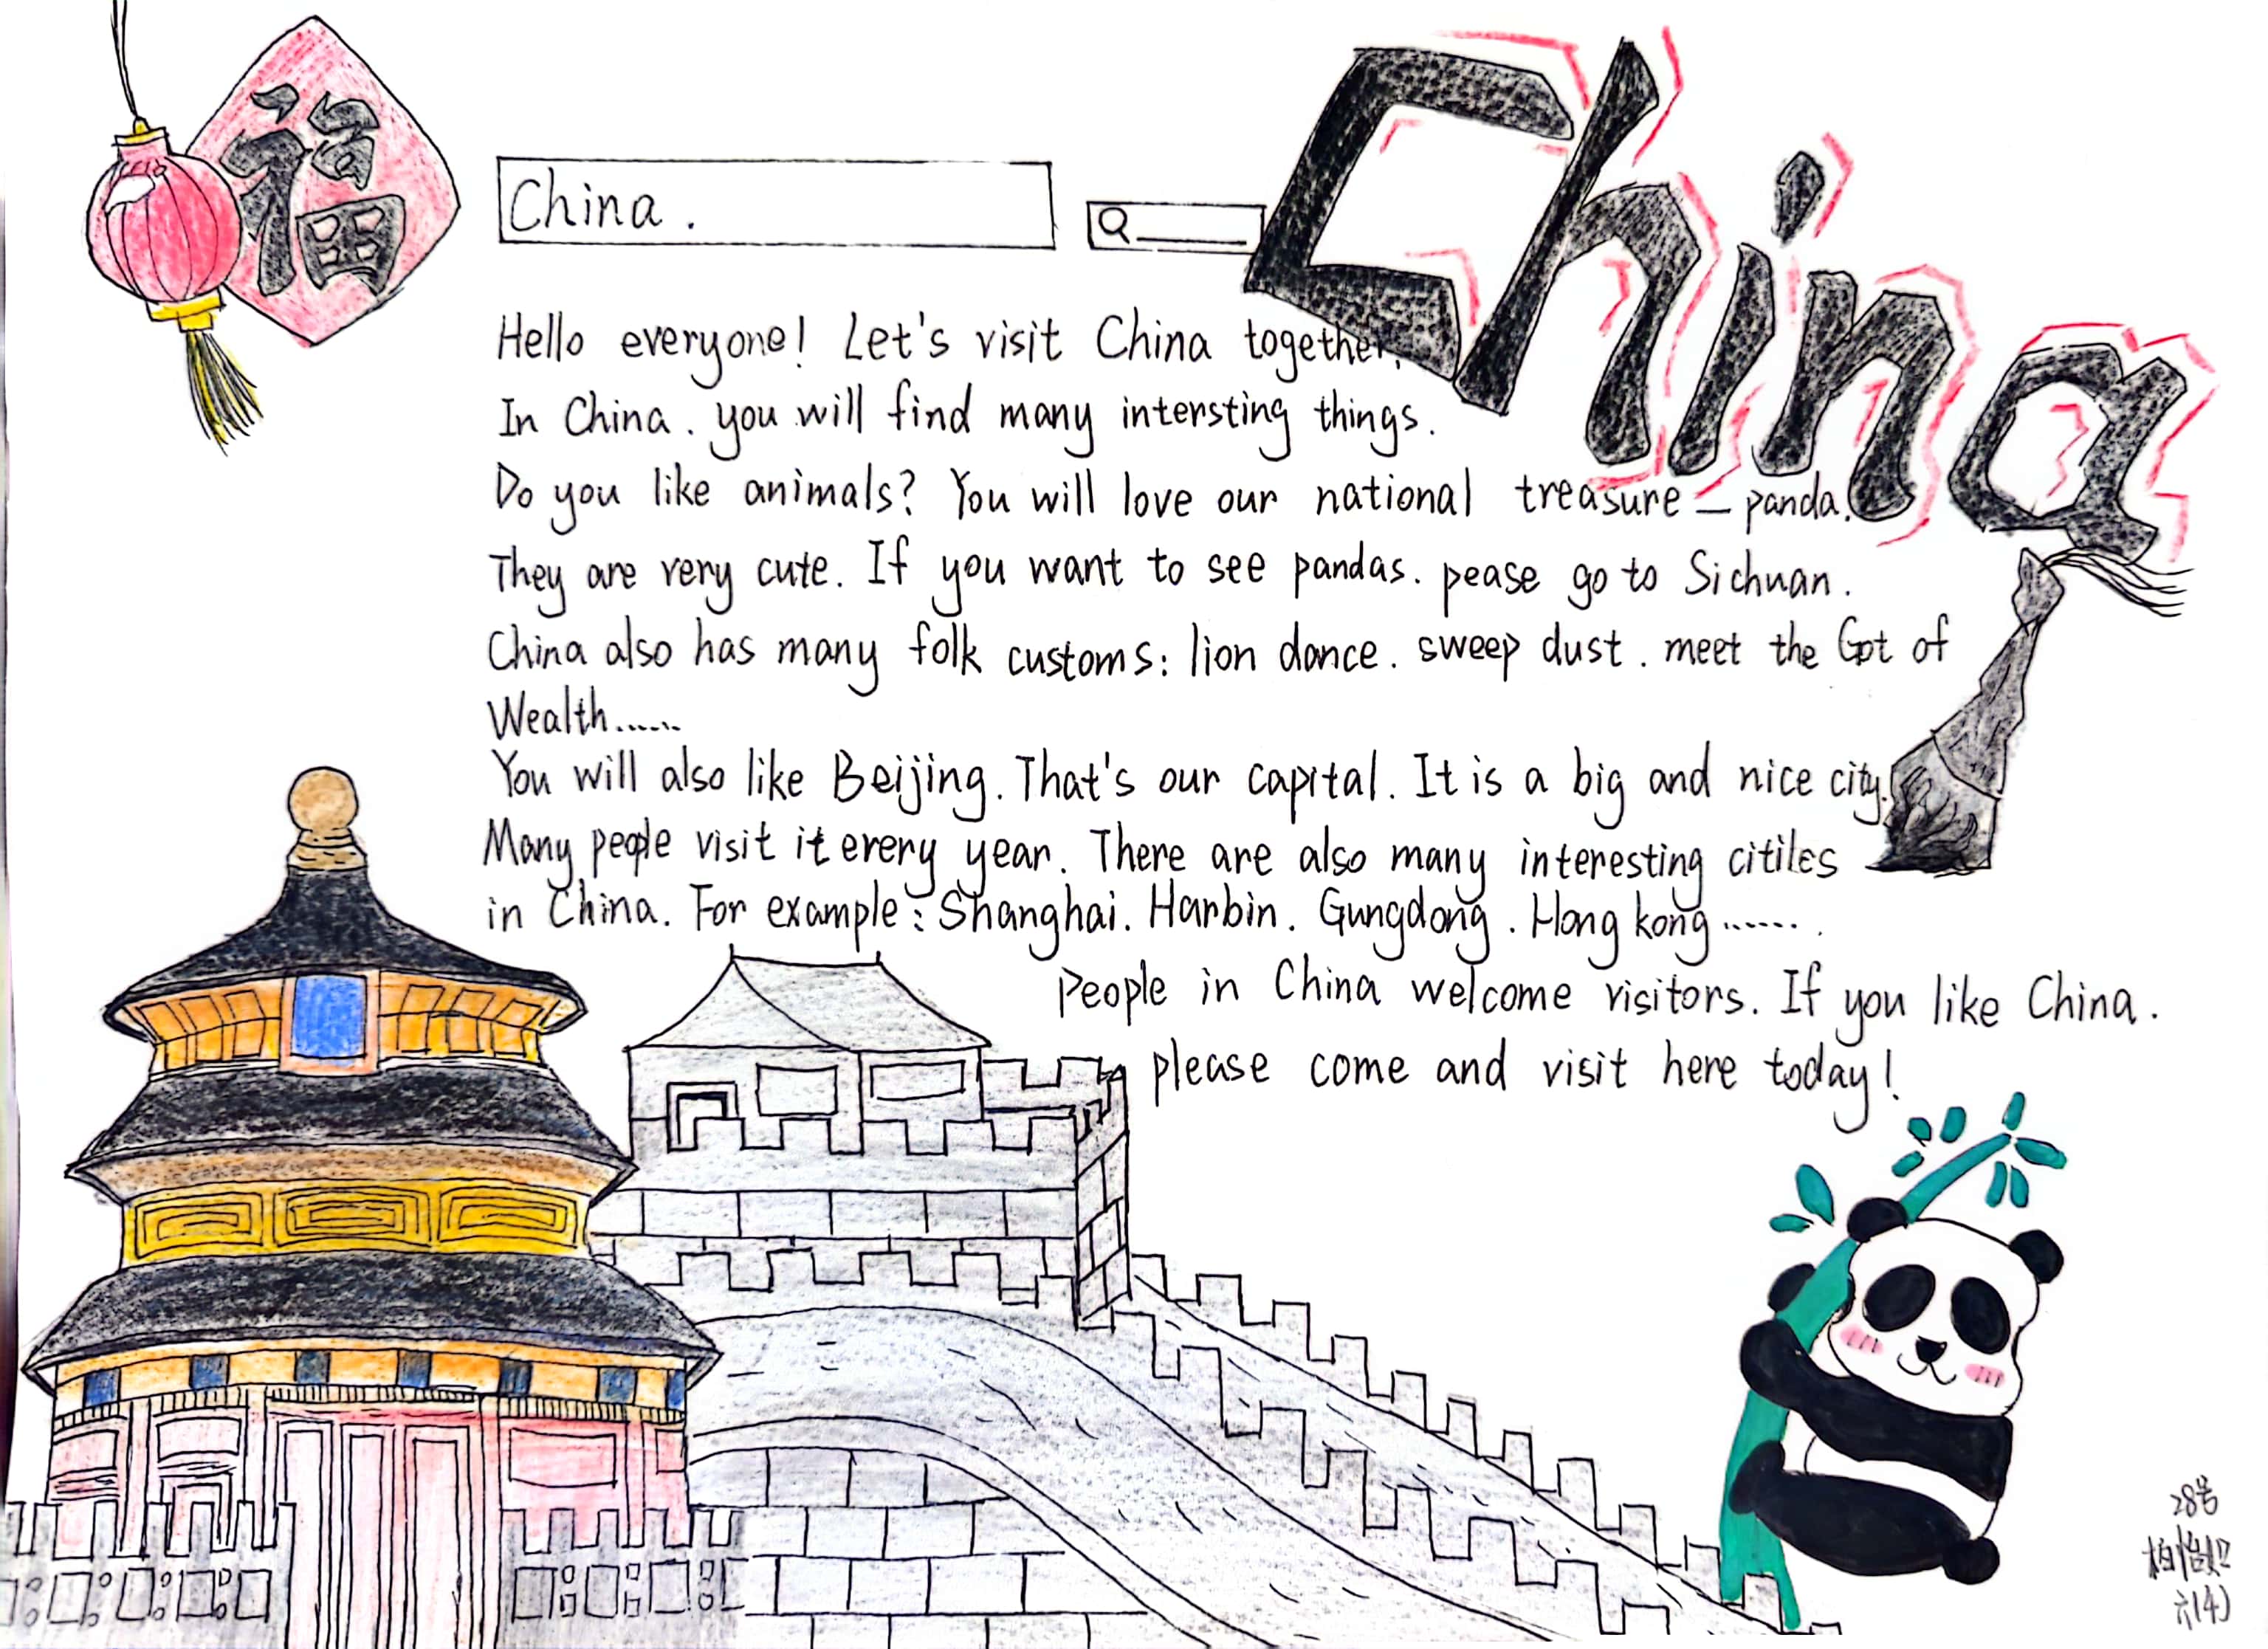 福
China
China.
Hello everyone! Let's visit China together.
In China. you will find many intersting things.
Do you like animals? You will love our national treasure — panda.
They are very cute. If you want to see pandas. pease go to Sichuan.
China also has many folk customs: lion dance. sweep dust. meet the Got of
Wealth......
You will also like Beijing. That's our capital. It is a big and nice city.
Many people visit it erery year. There are also many interesting citiles
in China. For example: Shanghai. Harbin. Gungdong. Hong kong.......
People in China welcome visitors. If you like China.
please come and visit here today!
28号
柏怡如
六(4)